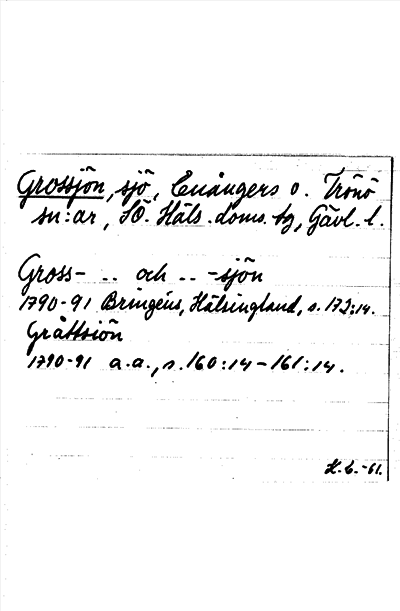 Grossjön, sjö, Enångers o. Trönö
sn:ar, SÖ. Häls. doms. tg, Gävl. l.
Gross- .. och .. -sjön
1790-91 Bringéus, Hälsingland, s. 172:14.
Gråttsiön
1790-91 a.a., s. 160:14-161:14.
-61.